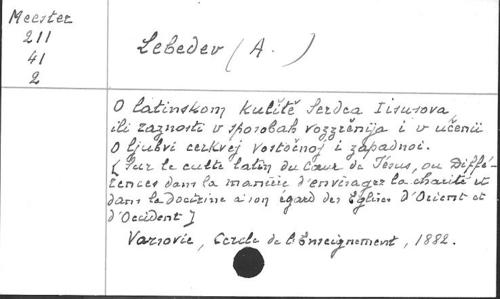 Meester
211
41
2
Lebedev (A. )
O latinskom kulitě Serdca Iisusova
ili raznosti v sposobah vozzrěnija i v učenii
o ljubvi cerkvej vostočnoj i zapadnoi.
[Sur le culte latin du Cœur de Jésus, ou Diffé-
rences dans la manière d'envisager la charité et
dans la doctrine à son égard des Eglises d'Orient et
d'Occident]
Varsovie, Cercle de l'Enseignement, 1882.